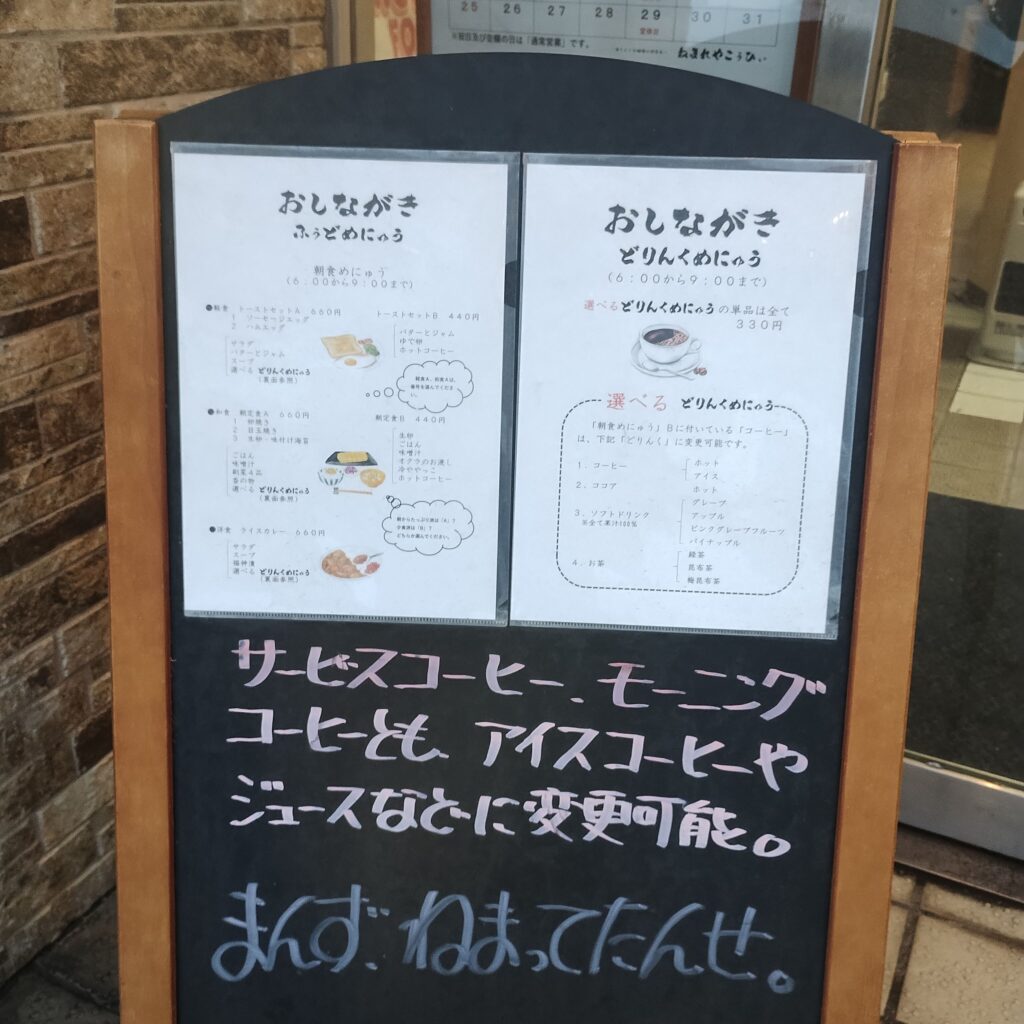 25 26 27 28 29 30 31
定休日
※祝日及び空欄の日は「通常営業」です。
ねまれやこうひぃ
おしながき
ふぅどめにゅう
朝食めにゅう
(6:00から9:00まで)
●軽食 トーストセットA 660円
1 ソーセージエッグ
2 ハムエッグ
サラダ
バターとジャム
スープ
選べる どりんくめにゅう
(裏面参照)
トーストセットB 440円
バターとジャム
ゆで卵
ホットコーヒー
軽食A、和食Aは、
番号を選んでくださ
い。
●和食 朝定食A 660円
1 卵焼き
2 目玉焼き
3 生卵・味付け海苔
ごはん
味噌汁
副菜4品
香の物
選べる どりんくめにゅう
(裏面参照)
朝定食B 440円
生卵
ごはん
味噌汁
オクラのお浸し
冷ややっこ
ホットコーヒー
朝からたっぷり派は「A」?
小食派は「B」?
どちらか選んでください。
●洋食 ライスカレー 660円
サラダ
スープ
福神漬
選べる どりんくめにゅう
(裏面参照)
おしながき
どりんくめにゅう
(6:00から9:00まで)
選べるどりんくめにゅうの単品は全て
330円
選べる どりんくめにゅう
「朝食めにゅう」Bに付いている「コーヒー」
は、下記「どりんく」に変更可能です。
1.コーヒー
ホット
アイス
2.ココア
ホット
3.ソフトドリンク
※全て果汁100%
グレープ
アップル
ピンクグレープフルーツ
パイナップル
4.お茶
緑茶
昆布茶
梅昆布茶
サービスコーヒー、モーニング
コーヒーとも、アイスコーヒーや
ジュースなどに変更可能を。
まんず、ねまってたんせ。